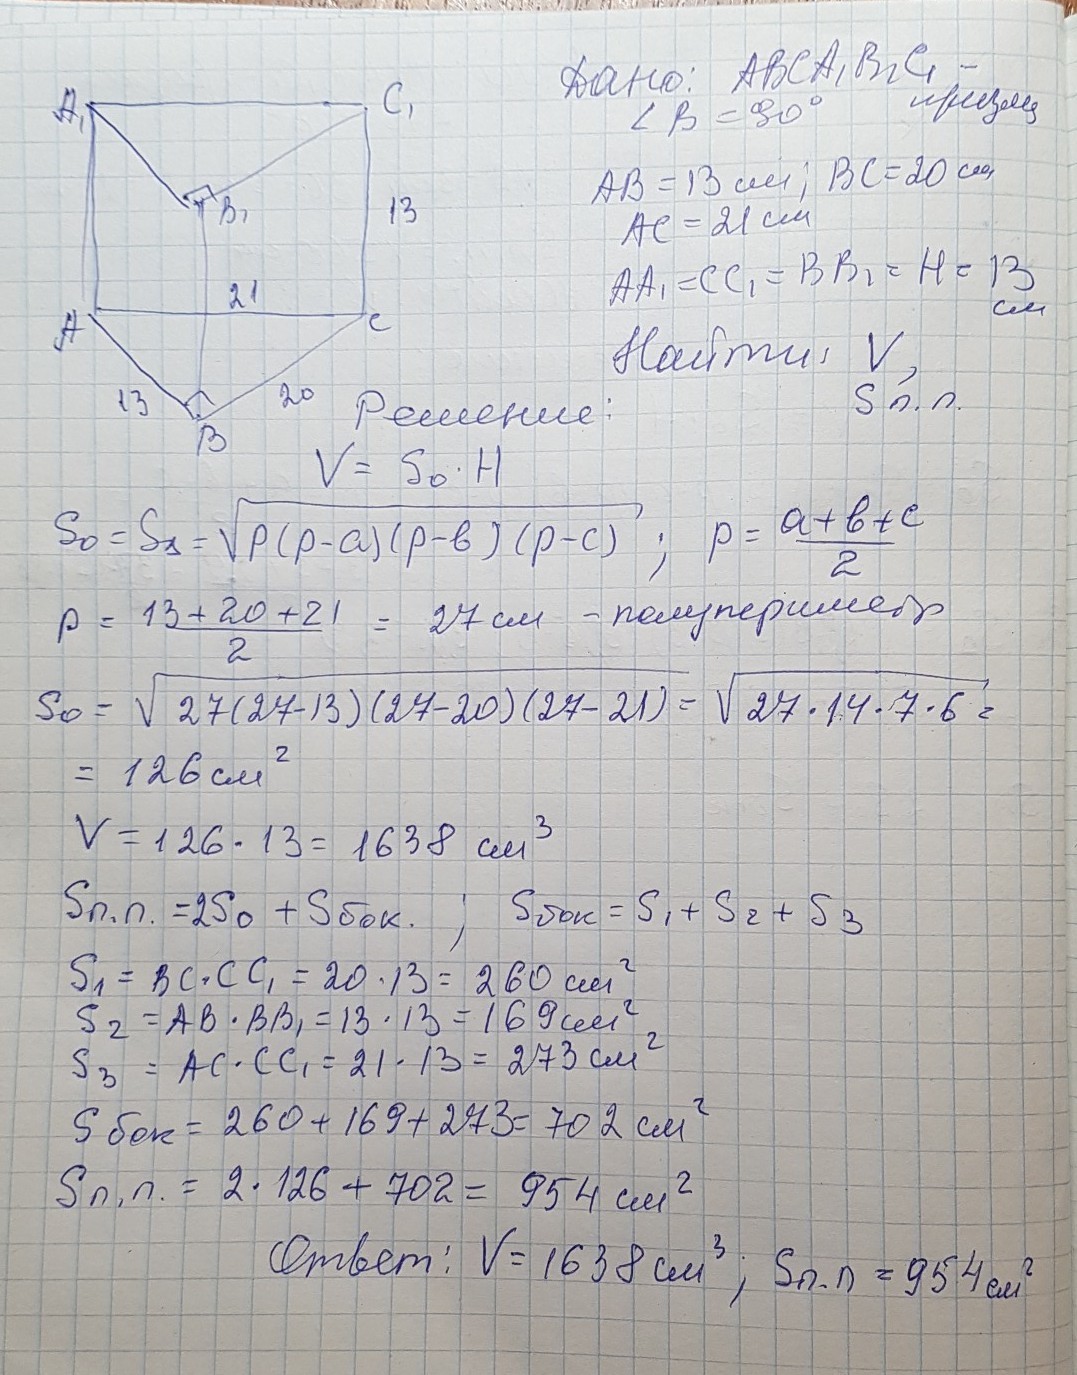 Дано: ABCA₁B₁C₁ – призма
∠B = 90°
AB = 13 см; BC = 20 см
AC = 21 см
AA₁ = CC₁ = BB₁ = H = 13 см
Найти: V,
Sп.п.
A₁
C₁
B₁
13
21
A
C
13
20
B
Решение:
V = S₀ · H
S₀ = S△ = √p(p-a)(p-b)(p-c) ; p = (a+b+c)/2
p = (13+20+21)/2 = 27 см – полупериметр
S₀ = √27(27-13)(27-20)(27-21) = √27·14·7·6 =
= 126 см²
V = 126 · 13 = 1638 см³
Sп.п. = 2S₀ + Sбок. ; Sбок = S₁ + S₂ + S₃
S₁ = BC·CC₁ = 20·13 = 260 см²
S₂ = AB·BB₁ = 13·13 = 169 см²
S₃ = AC·CC₁ = 21·13 = 273 см²
Sбок = 260 + 169 + 273 = 702 см²
Sп.п. = 2·126 + 702 = 954 см²
Ответ: V = 1638 см³; Sп.п = 954 см²